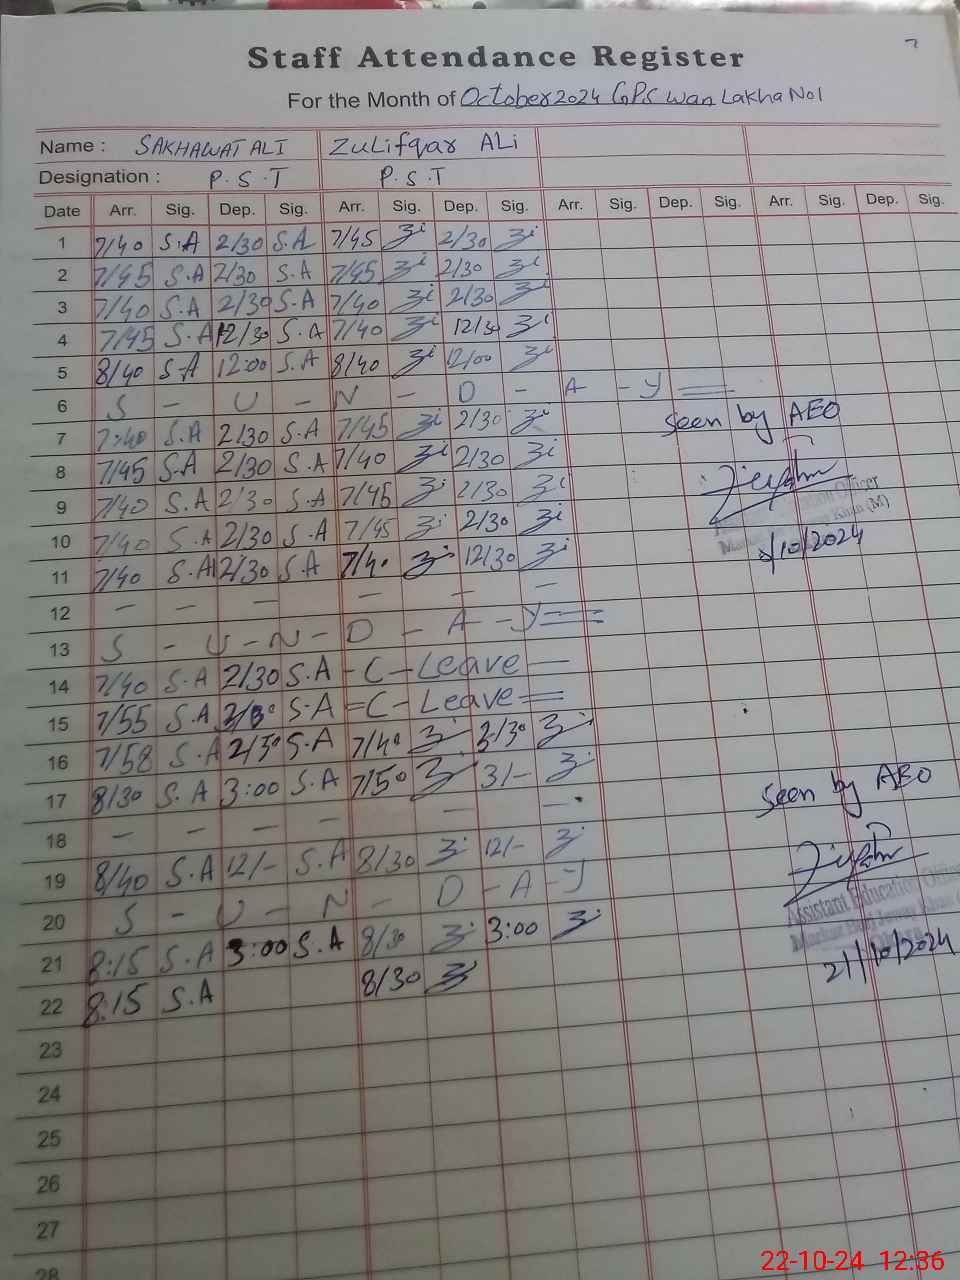 Staff Attendance Register
For the Month of October 2024 GPS Wan Lakha No1
Name : SAKHAWAT ALI Zulifqar ALi
Designation : P.S.T P.S.T
Date Arr. Sig. Dep. Sig. Arr. Sig. Dep. Sig. Arr. Sig. Dep. Sig. Arr. Sig. Dep. Sig.
1 7/40 S.A 2/30 S.A 7/45 Zi 2/30 Zi
2 7/45 S.A 2/30 S.A 7/45 Zi 2/30 Zi
3 7/40 S.A 2/30 S.A 7/40 Zi 2/30 Zi
4 7/45 S.A 12/30 S.A 7/40 Zi 12/30 Zi
5 8/40 S.A 12:00 S.A 8/40 Zi 12/00 Zi
6 S - U - N - D - A - Y
seen by AEO
7 7:40 S.A 2/30 S.A 7/45 Zi 2/30 Zi
8 7/45 S.A 2/30 S.A 7/40 Zi 2/30 Zi
9 7/40 S.A 2/30 S.A 7/45 Zi 2/30 Zi
10 7/40 S.A 2/30 S.A 7/45 Zi 2/30 Zi
/10/2024
11 7/40 S.A 12/30 S.A 7/40 Zi 12/30 Zi
12 - - - - - -
13 S - U - N - D - A - Y
14 7/40 S.A 2/30 S.A - C - Leave -
15 7/55 S.A 2/30 S.A = C - Leave =
16 7/58 S.A 2/30 S.A 7/40 Zi 2/30 Zi
17 8/30 S.A 3:00 S.A 7/50 Zi 3/- Zi
seen by AEO
18 - - - - - - -
19 8/40 S.A 12/- S.A 8/30 Zi 12/- Zi
20 S - U - N - D - A - Y
Assistant Education Officer
21 8:15 S.A 3:00 S.A 8/30 Zi 3:00 Zi
21/10/2024
22 8:15 S.A 8/30 Zi
23
24
25
26
27
28
22-10-24 12:36